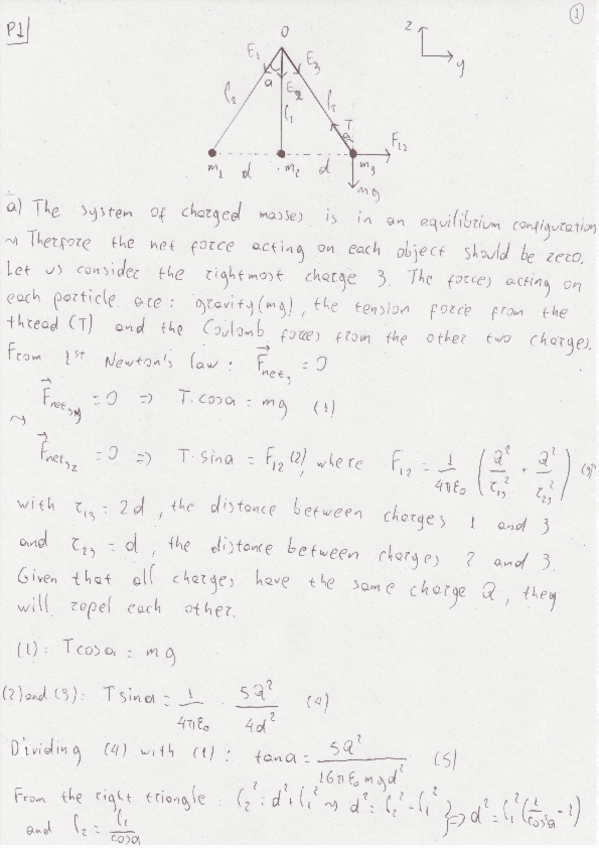 1
P1
O
z
y
E1
E2
E3
a
l2
l1
l2
T
a
F12
m1
d
m2
d
m3
mg
a) The system of charged masses is in an equilibrium configuration
~> Therfore the net force acting on each object should be zero.
Let us consider the rightmost charge 3. The forces acting on
each particle are: gravity (mg), the tension force from the
thread (T) and the Coulomb forces from the other two charges.
From 1st Newton's law: F⃗net3 = 0
F⃗net3y = 0 => T·cosa = mg (1)
~>
F⃗net3z = 0 => T·sina = F12 (2), where F12 = 1/4πε0 (Q²/r13² + Q²/r23²) (3)
with r13 = 2d, the distance between charges 1 and 3
and r23 = d, the distance between charges 2 and 3.
Given that all charges have the same charge Q, they
will repel each other.
(1): Tcosa = mg
(2) and (3): Tsina = 1/4πε0 · 5Q²/4d² (4)
Dividing (4) with (1): tana = 5Q²/16πε0mgd² (5)
From the right triangle: l2² = d² + l1² ~> d² = l2² - l1² } => d² = l1² (1/cos²a - 1)
and l2 = l1/cosa